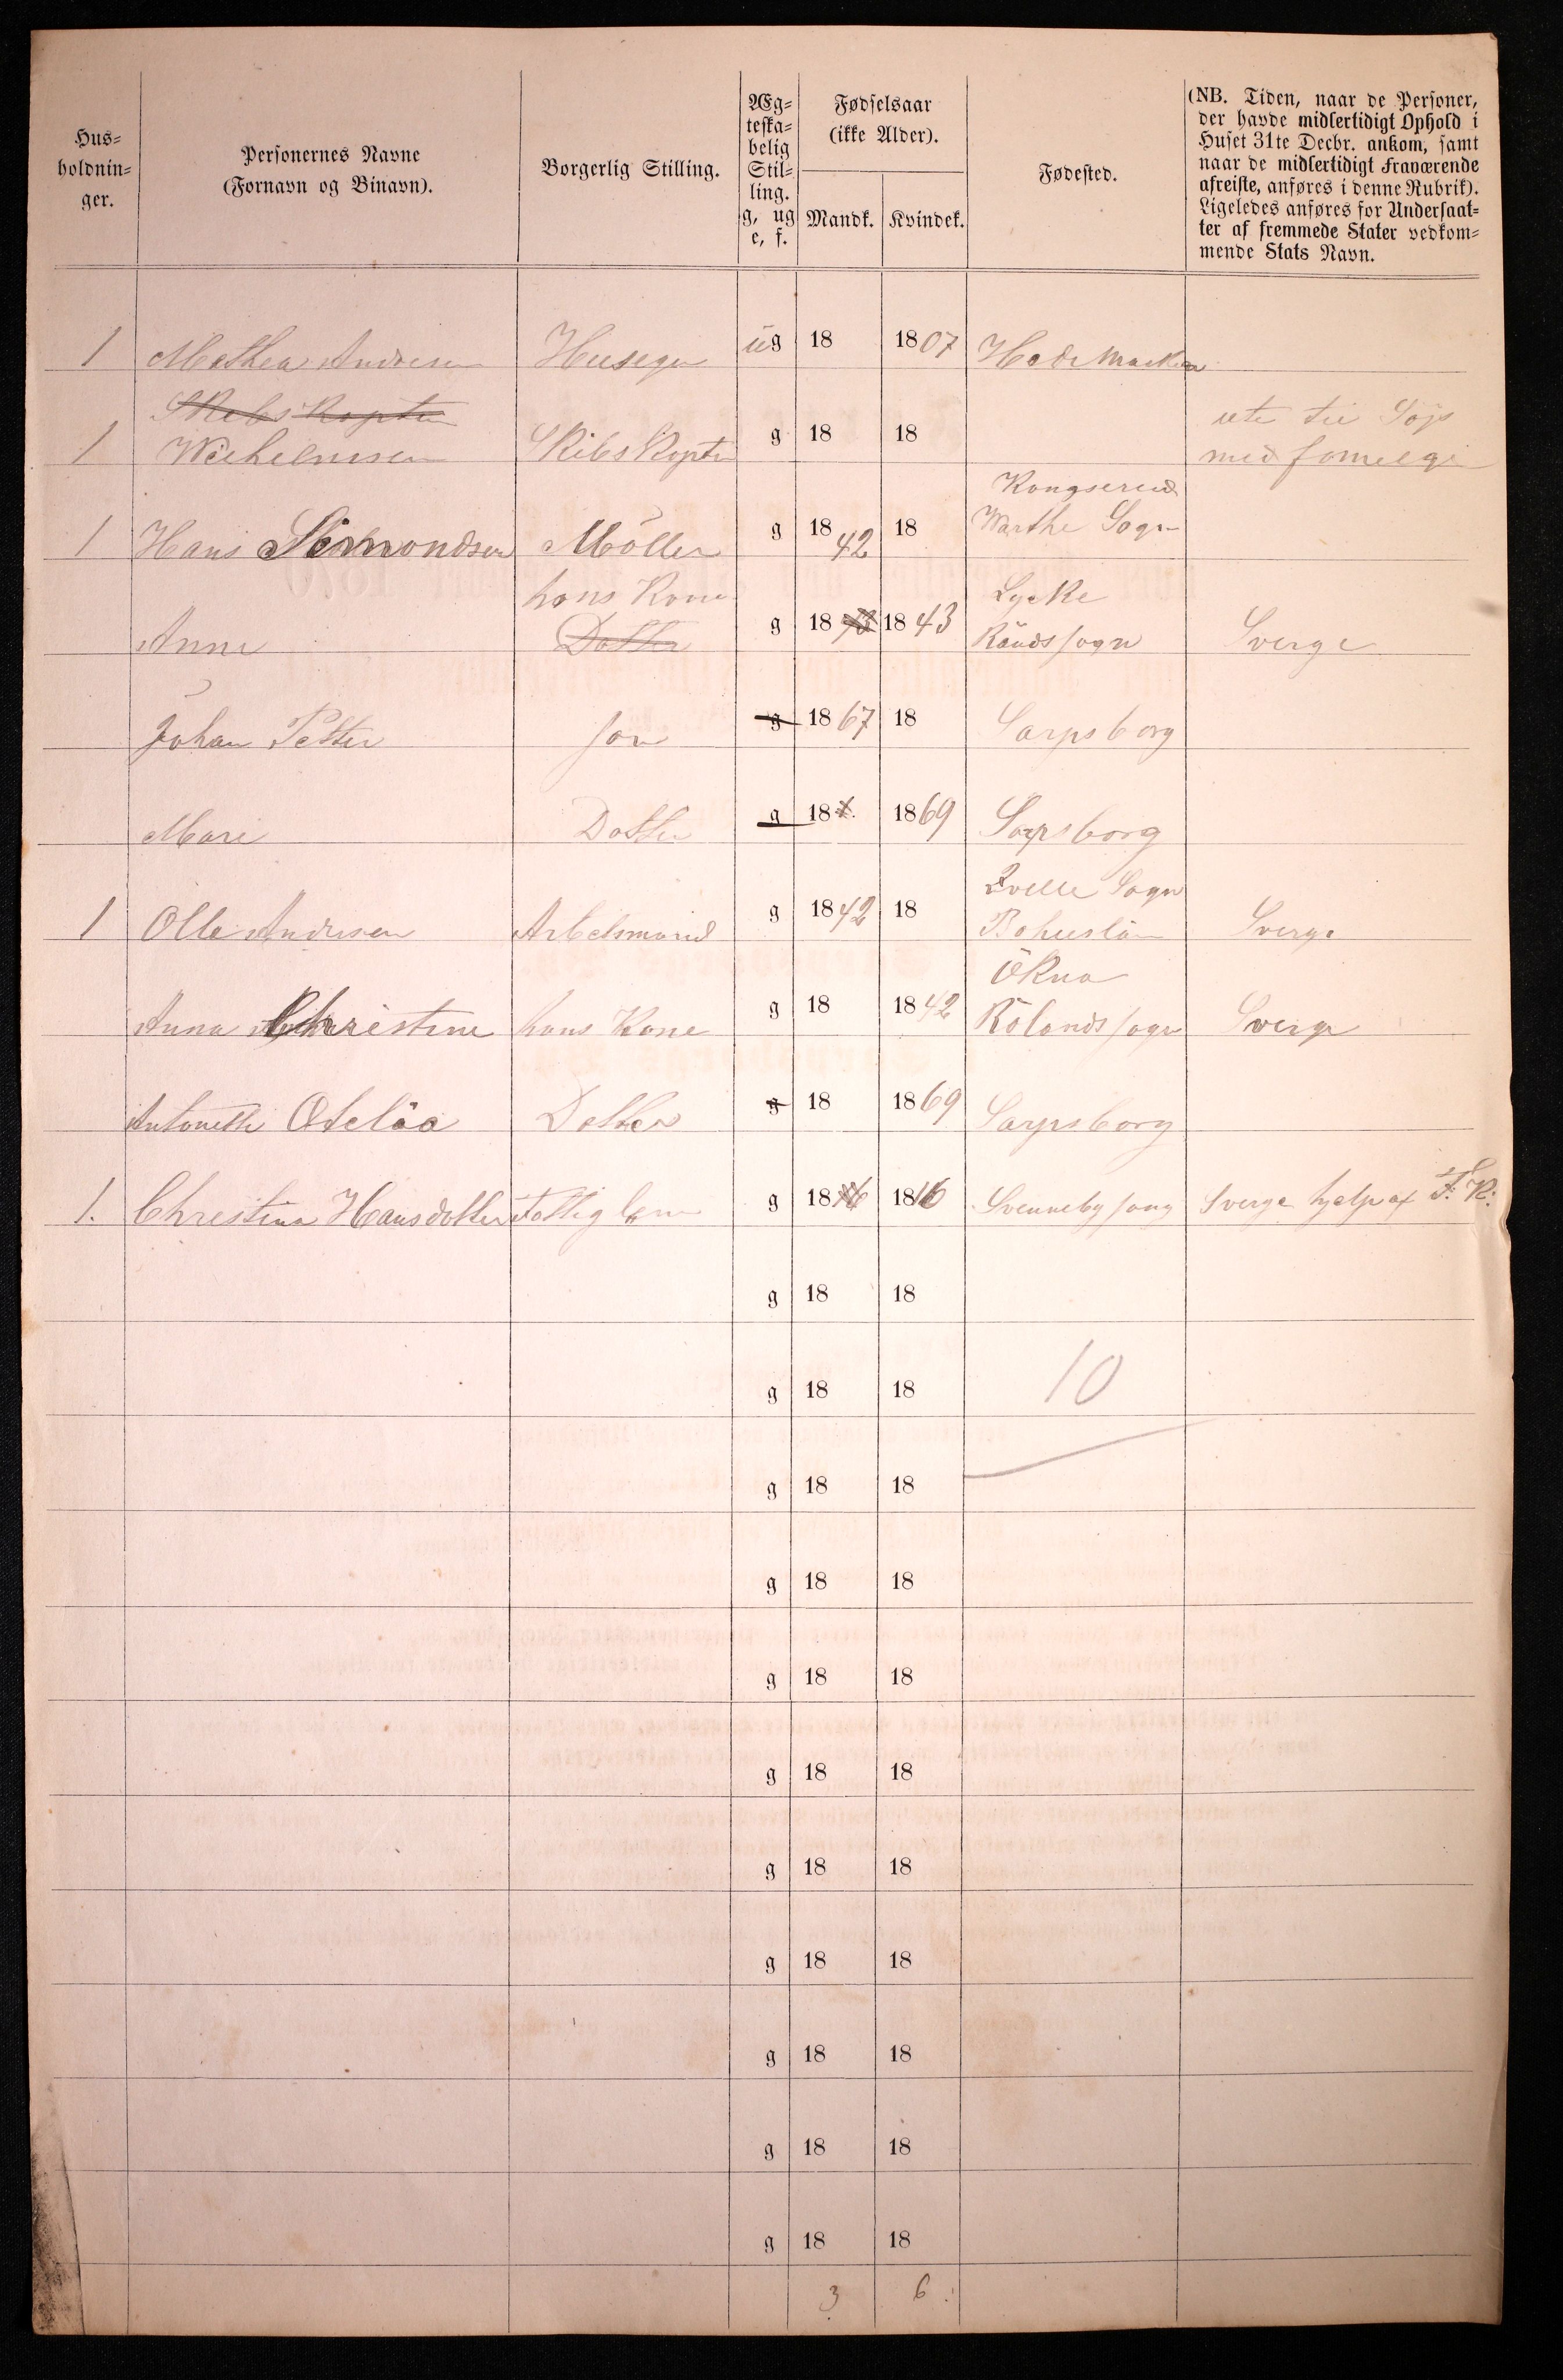 Hus=
holdnin=
ger.
Personernes Navne
(Fornavn og Binavn).
Borgerlig Stilling.
Æg=
teska=
belig
Stil=
ling.
g, ug
e, f.
Fødselsaar
(ikke Alder).
Mandk. Kvindek.
Fødested.
(NB. Tiden, naar de Personer,
der havde midlertidigt Ophold i
Huset 31te Decbr. ankom, samt
naar de midlertidigt fraværende
afreiste, anføres i denne Rubrik).
Ligeledes anføres for Undersaat=
ter af fremmede Stater vedkom=
mende Stats Navn.
1 Mathea Andresen Huseger ug 18 1807 Hedemarken
Skibskapten
1 Wilhelmsen Skibskapten g 18 18 ute til Söjs
med familge
Kongserud
1 Hans Simondsen Möller g 1842 18 Warthe Sogn
hans Kone Lycke
Anne Dotter g 18 1843 Rånds sogn Sverge
Johan Petter son g 1867 18 Sarpsborg
Mari Dotter g 18 1869 Sarpsborg
Qville Sogn
1 Olle Andersen Arbetsmand g 1842 18 Bohuslän Sverge
Ökna
Anna Christine hans Kone g 18 1842 Rölands sogn Sverge
Antonette Oteléa Dotter g 18 1869 Sarpsborg
1. Christina Hansdotter Fattiglem g 18 1816 Svenneby song Sverge hjelp af F. K.
g 18 18
g 18 18 10
g 18 18
g 18 18
g 18 18
g 18 18
g 18 18
g 18 18
g 18 18
g 18 18
g 18 18
3 6